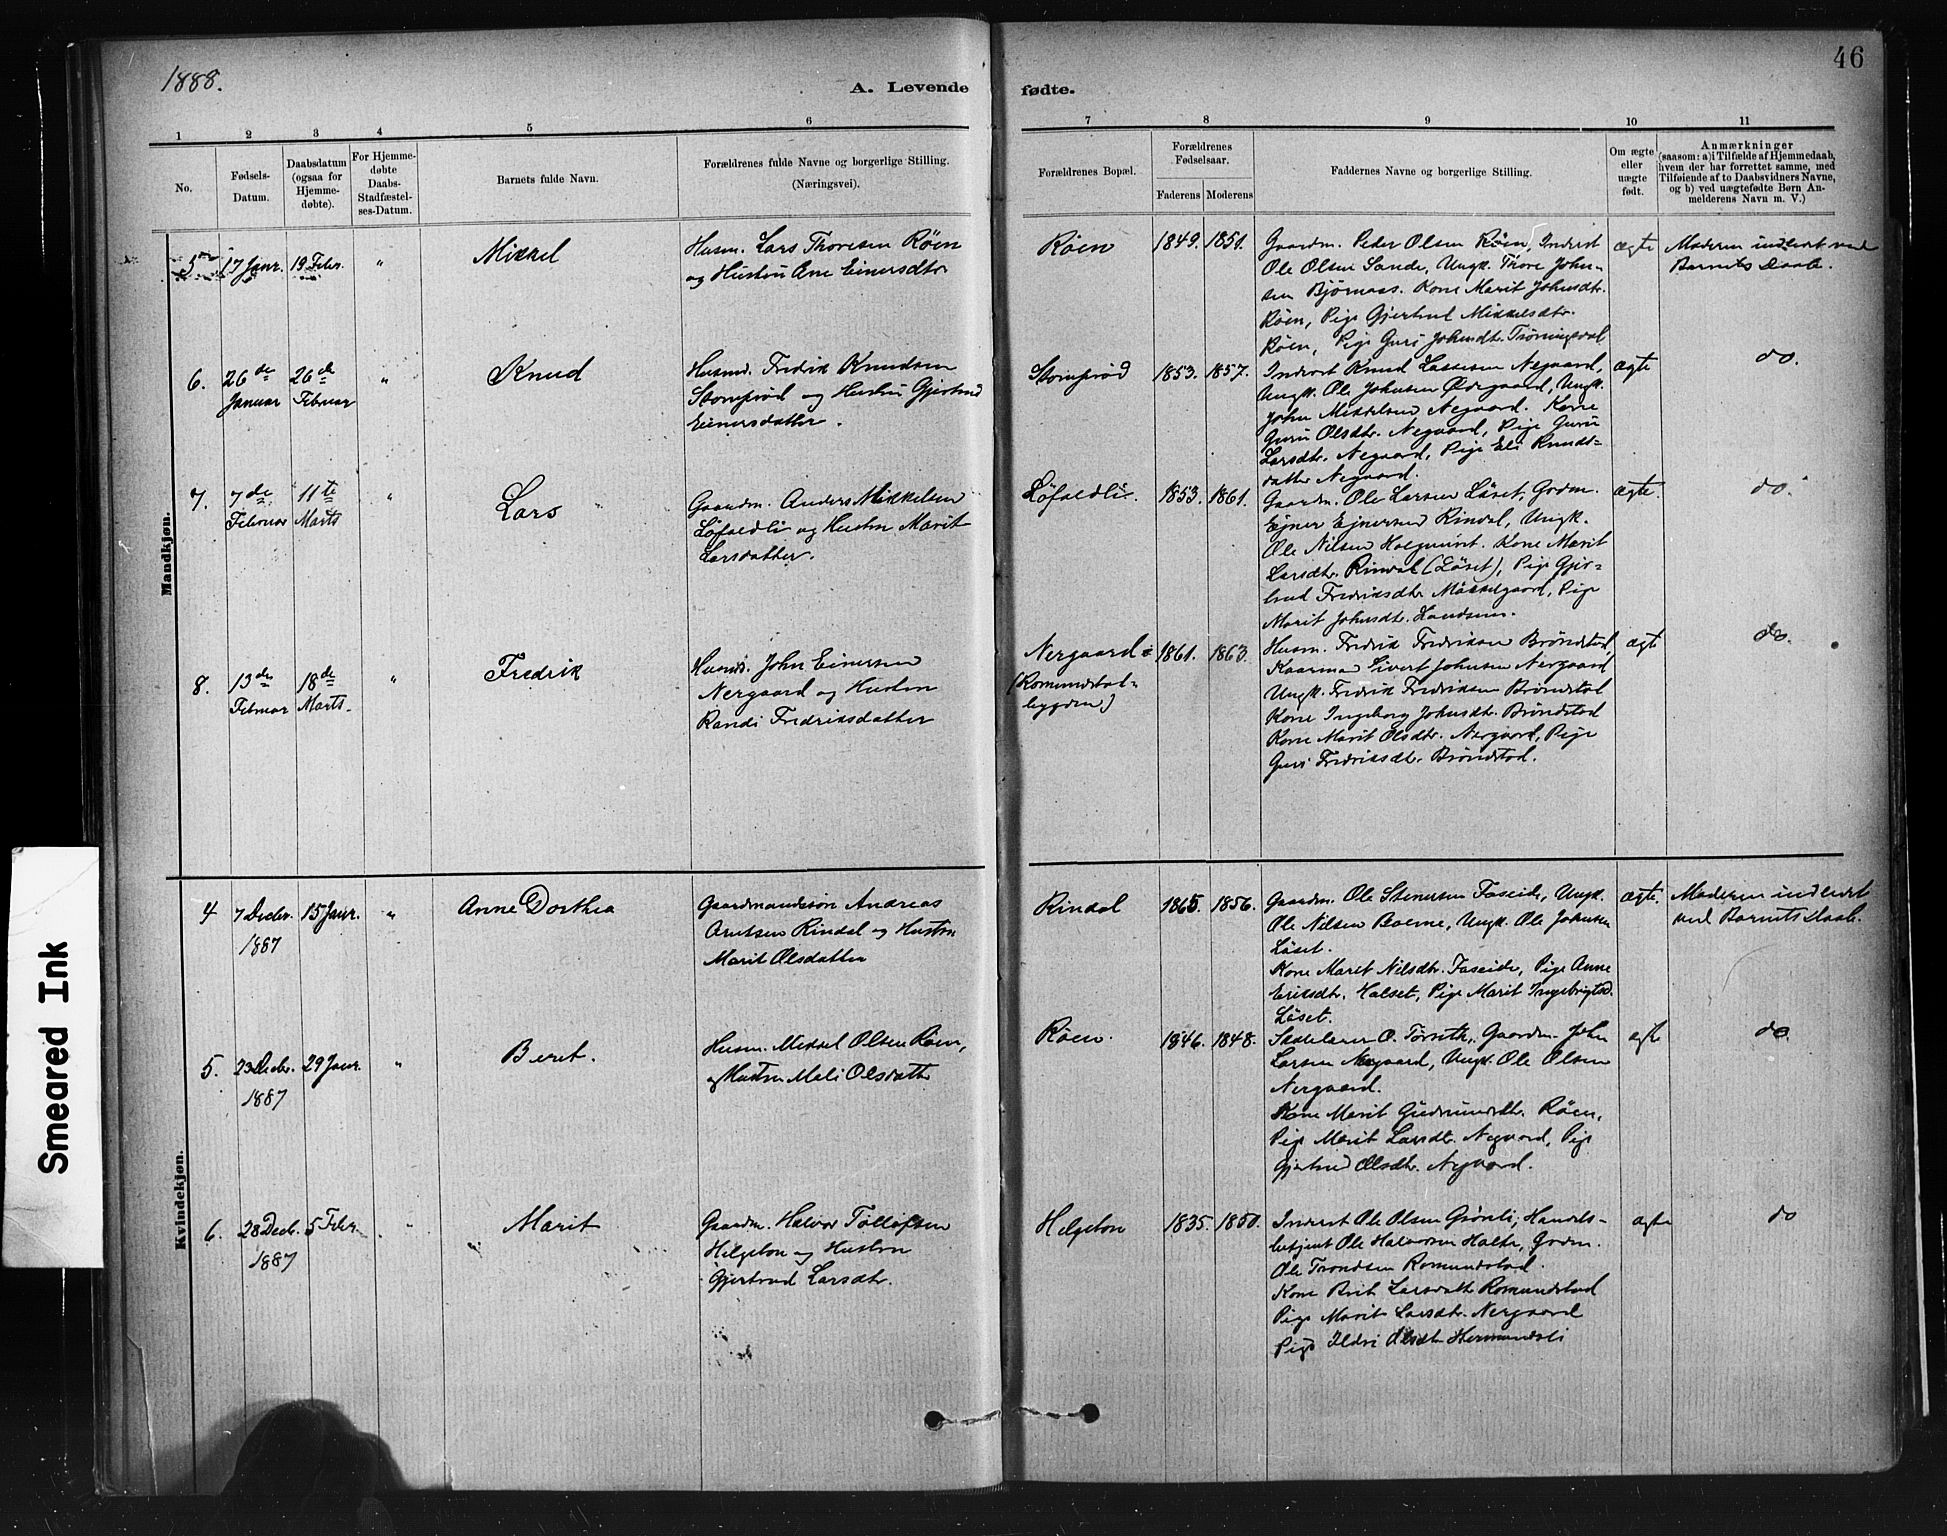 1888.
46
A. Levende fødte.
1 2 3 4 5 6 7 8 9 10 11
No.
Fødsels-
Datum.
Daabsdatum
(ogsaa for
Hjemme-
døbte).
For Hjemme-
døbte
Daabs-
Stadfæstel-
ses-Datum.
Barnets fulde Navn.
Forældrenes fulde Navne og borgerlige Stilling.
(Næringsvei).
Forældrenes Bopæl.
Forældrenes
Fødselsaar.
Faderens Moderens
Faddernes Navne og borgerlige Stilling.
Om ægte
eller
uægte
født.
Anmærkninger
(saasom: a) i Tilfælde af Hjemmedaab,
hvem der har forrettet samme, med
Tilføiende af to Daabsvidners Navne,
og b) ved uægtefødte Børn An-
melderens Navn m. V.)
Mandkjøn.
5
17 Janr.
19 Febr.
"
Mikkel
Husm. Lars Thoresen Røen
og Hustru Ane Einersdtr
Røen
1849. 1851.
Gaardm. Peder Olsen Røen, Inderst
Ole Olsen Sande, Ungk. Thore John-
sen Bjørnaas. Kone Marit Johnsdtr.
Røen, Pige Gjertrud Mikkelsdtr.
Røen, Pige Guri Johnsdtr.
ægte
Moderen indledt ved
Barnets Daab.
6.
26de
Januar
26de
Februar
"
Knud
Husmd. Fredrik Knudsen
Stomprød og Hustru Gjertrud
Einersdatter.
Stomprød
1853. 1857.
Inderst Knud Larsen Negaard,
Ungk. Ole Johnsen Ødegaard, Ungk.
John Mikkelsen Negaard. Kone
Guru Olsdtr. Negaard, Pige Guru
Larsdtr. Negaard, Pige Eli Knuds-
datter Negaard.
ægte
do.
7.
7de
Februar
11te
Marts
"
Lars
Gaardm. Anders Mikkelsen
Løfaldli og Hustru Marit
Larsdatter.
Løfaldli.
1853. 1861.
Gaardm. Ole Larsen Løset, Gaardm.
Ejner Ejnersen Rindal, Ungk.
Ole Nilsen. Kone Marit
Larsdtr. Rindal (Løset), Pige Gjer-
trud Fredriksdtr. Mikkelgaard, Pige
Marit Johnsdtr. Landsem.
ægte.
do.
8.
13de
Februar
18de
Marts.
"
Fredrik
Husmd. John Einersen
Nergaard og Hustru
Randi Fredriksdatter
Nergaard i
(Romundstad-
bygden)
1861. 1863.
Husm. Fredrik Fredriksen Brøndstad,
Kaarmd Sivert Johnsen Nergaard
Ungk. Fredrik Fredriksen Brøndstad
Kone Ingeborg Johnsdtr. Brøndstad
Kone Marit Olsdtr. Nergaard, Pige
Guri Fredriksdtr. Brøndstad.
ægte
do.
Kvindekjøn.
4
7 Decbr.
1887
15 Janr.
"
Anne Dorthea
Gaardmandssøn Andreas
Arntsen Rindal og Hustru
Marit Olsdatter
Rindal
1865 1856.
Gaardm. Ole Stenersen Faseide, Ungk.
Ole Nilsen Boerne, Ungk. Ole Johnsen
Løset.
Kone Maret Nilsdtr. Faseide, Pige Anne
Eriksdtr. Halset, Pige Marit Ingebrigtsd.
Løset.
ægte.
Moderen indledt
ved Barnets Daab.
5.
23 Decbr.
1887
29 Janr.
"
Beret.
Husm. Mikkel Olsen Røen,
og Hustru Mali Olsdattr
Røen.
1846. 1848.
O. Tørseth, Gaardm. John
Larsen Negaard, Ungk. Ole Olsen
Nergaard.
Kone Marit Gudmundsdtr. Røen,
Pige Marit Larsdtr. Negaard, Pige
Gjertrud Olsdtr. Negaard.
ægte
do.
6.
28 Decb.
1887
5 Febr.
"
Marit
Gaardm. Halvor Tollefsen
Helgeton og Hustru
Gjertrud Larsdtr.
Helgeton
1835. 1850.
Inderst Ole Olsen Grønli, Handels-
betjent Ole Halvorsen Holte, Gaardm.
Ole Trondsen Romundstad.
Kone Brit Larsdattr Romundstad
Pige Marit Larsdtr. Nergaard
Pige Ildri Olsdtr Hermundsli
ægte
do
Smeared Ink